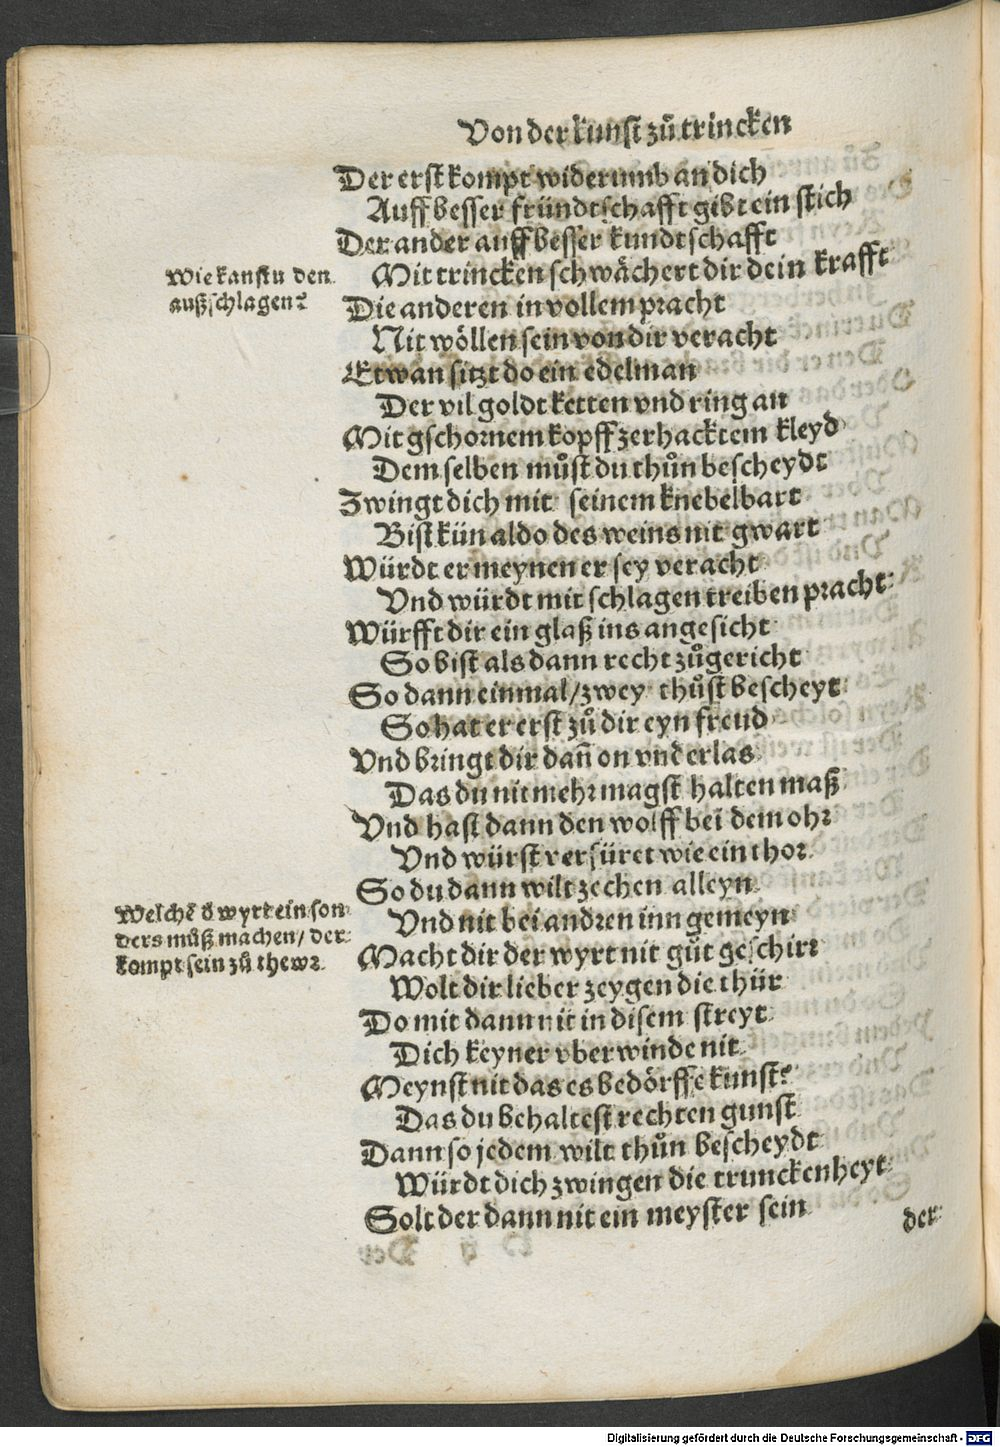 Von der kunst zů trincken
Der erst kompt widerumb an dich
Auff besser fründtschafft gibt ein stich
Der ander auff besser kundtschafft
Mit trincken schwächert dir dein krafft
Wie kanstu den
außschlagen?
Die anderen in vollem pracht
Nit wöllen sein von dir veracht
Etwan sitzt do ein edelman
Der vil goldt ketten vnd ring an
Mit gschornem kopff zerhacktem kleyd
Dem selben můst du thůn bescheydt
Zwingt dich mit seinem knebelbart
Bist kün aldo des weins nit gwart
Würdt er meynen er sey veracht
Vnd würdt mit schlagen treiben pracht
Würfft dir ein glaß ins angesicht
So bist als dann recht zůgericht
So dann einmal / zwey thůst bescheyt
So hat er erst zů dir eyn freud
Vnd bringt dir dañ on vnderlas
Das du nit mehr magst halten maß
Vnd hast dann den wolff bei dem ohr
Vnd würst verfüret wie ein thor
So du dann wilt zechen alleyn
Welchē d̕ wyrt ein son
ders můß machen / der
kompt sein zů thewr
Vnd nit bei andren inn gemeyn
Macht dir der wyrt nit gůt geschirr
Wolt dir lieber zeygen die thür
Do mit dann nit in disem streyt
Dich keyner vberwinde nit
Meynst nit das es bedörffe kunst?
Das du behaltest rechten gunst
Dann so jedem wilt thůn bescheydt
Würdt dich zwingen die trunckenheyt
Solt der dann nit ein meyster sein
der
Digitalisierung gefördert durch die Deutsche Forschungsgemeinschaft - DFG